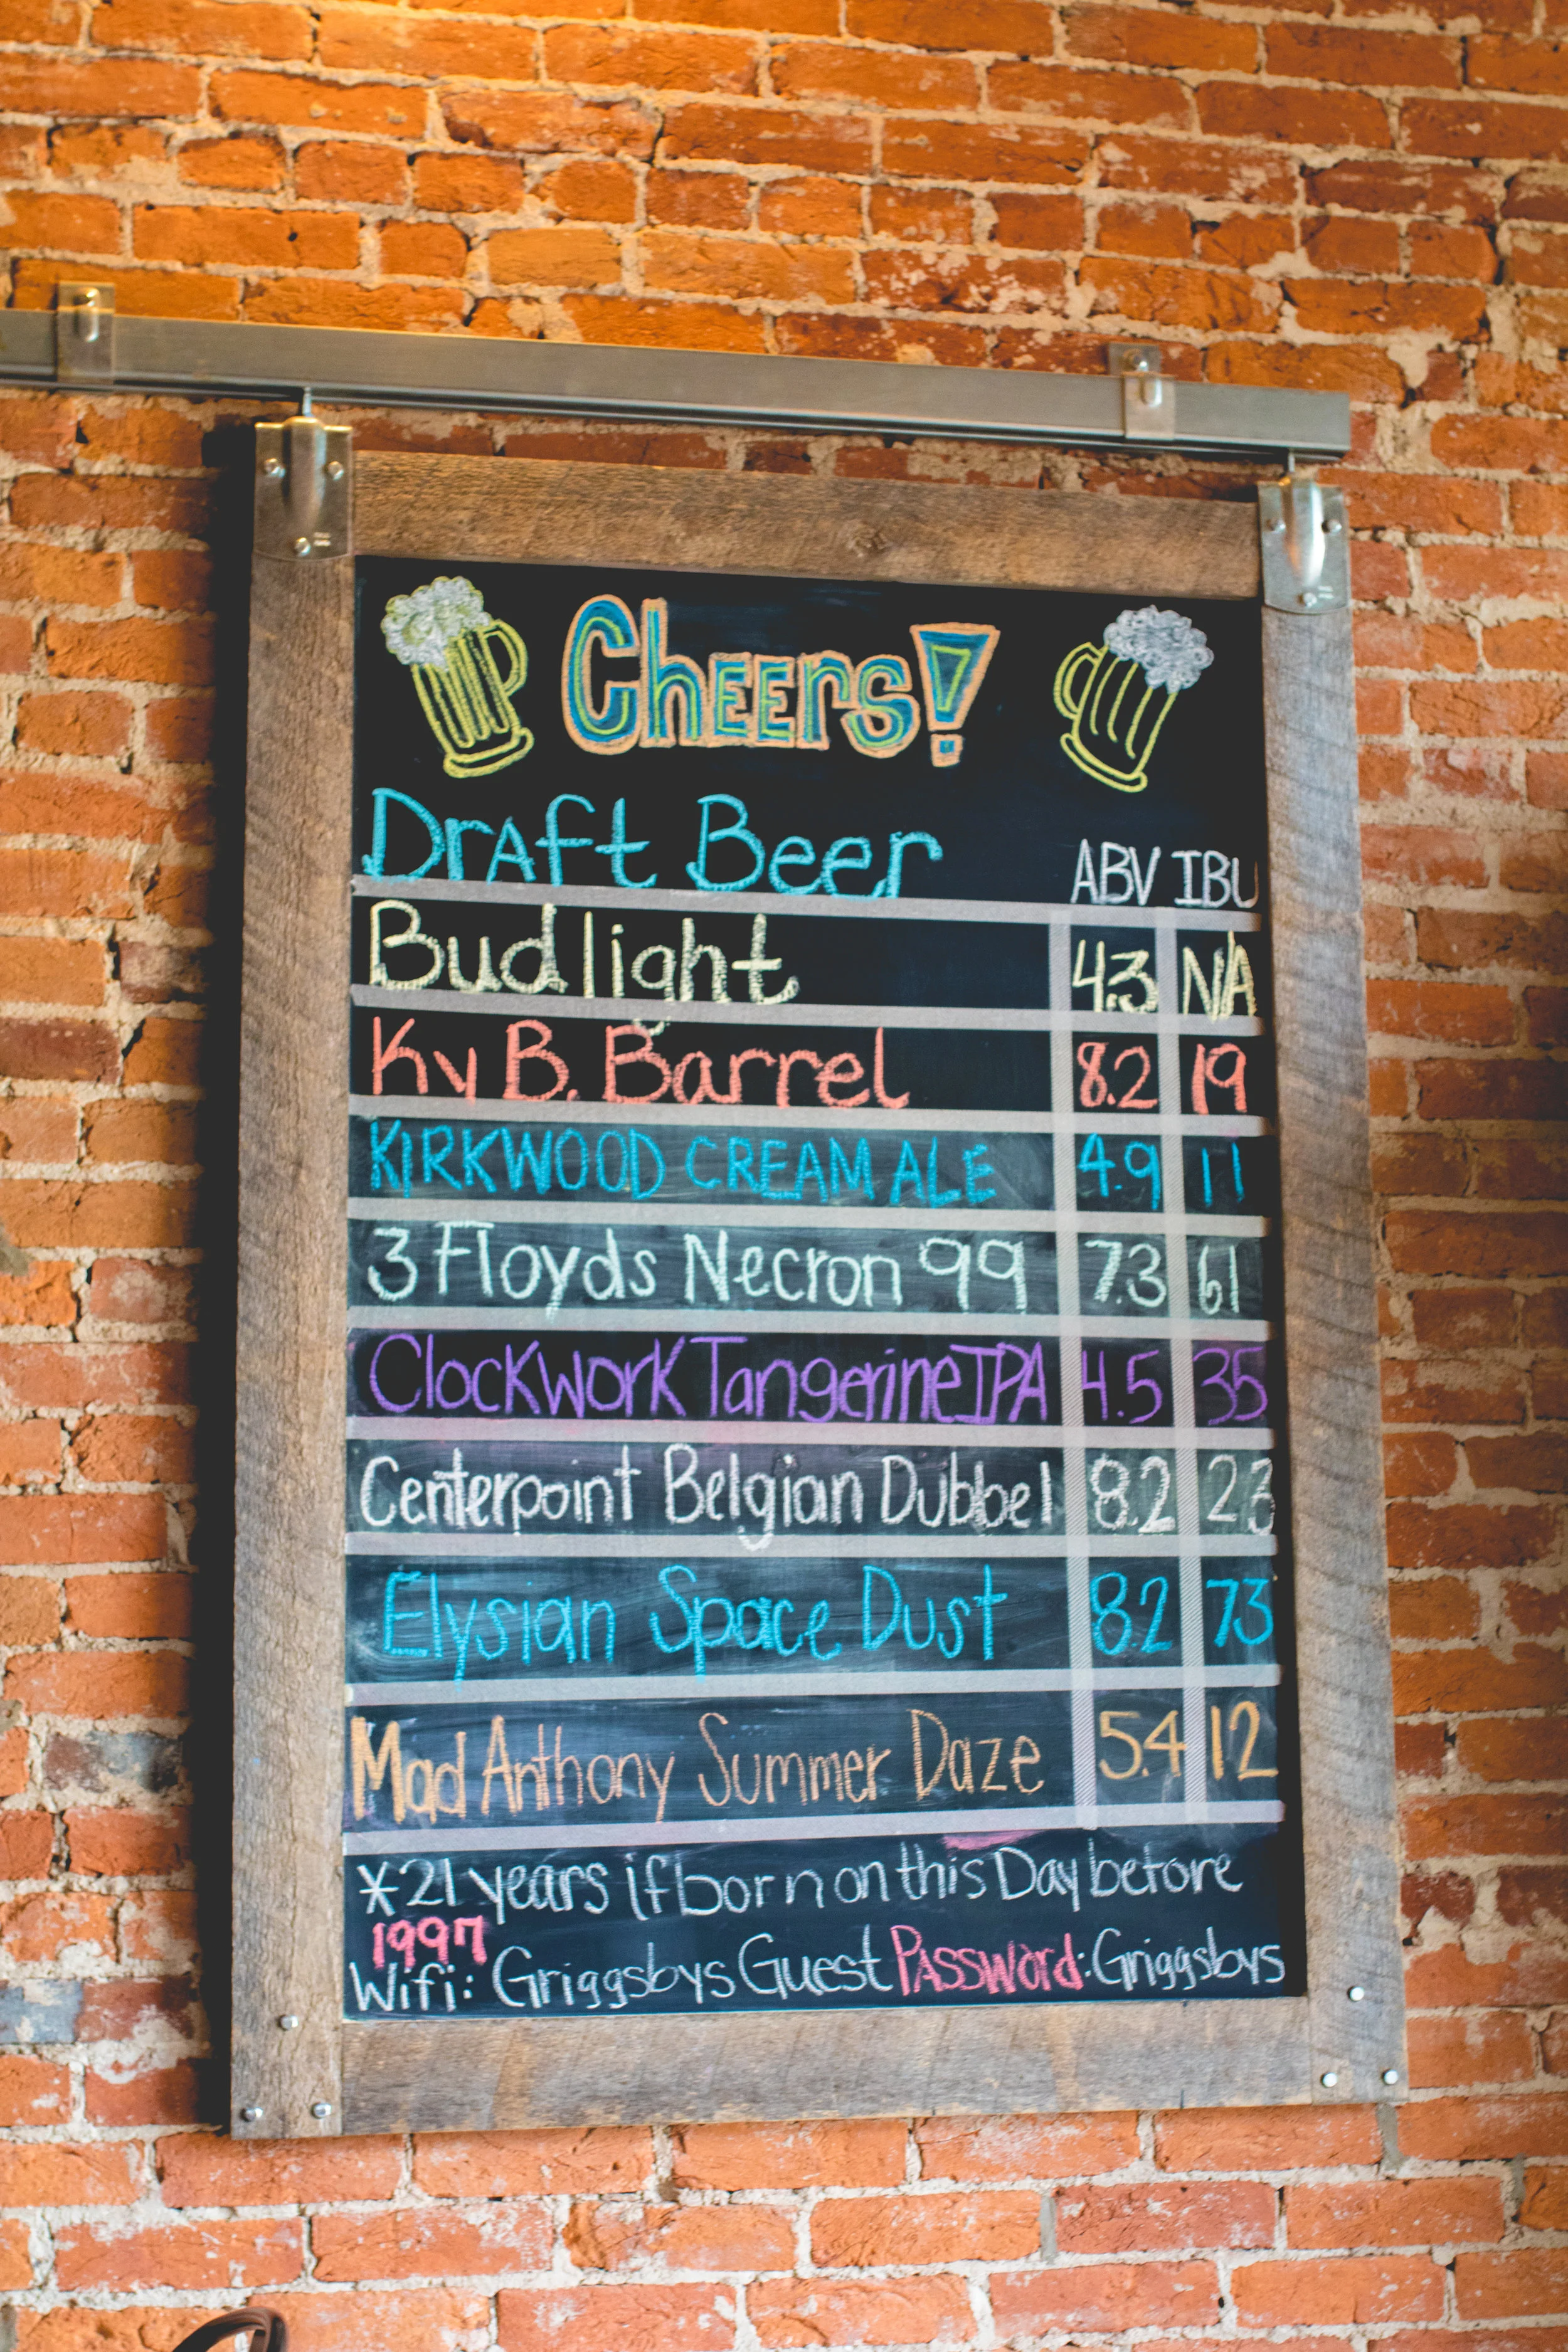 Cheers!
Draft Beer ABV IBU
Bud light 4.3 NA
Ky B. Barrel 8.2 19
KIRKWOOD CREAM ALE 4.9 11
3 Floyds Necron 99 7.3 61
Clockwork Tangerine IPA 4.5 35
Centerpoint Belgian Dubbel 8.2 23
Elysian Space Dust 8.2 73
Mad Anthony Summer Daze 5.4 12
*21 years if born on this Day before
1997
Wifi: Griggsbys Guest PASSWord: Griggsbys